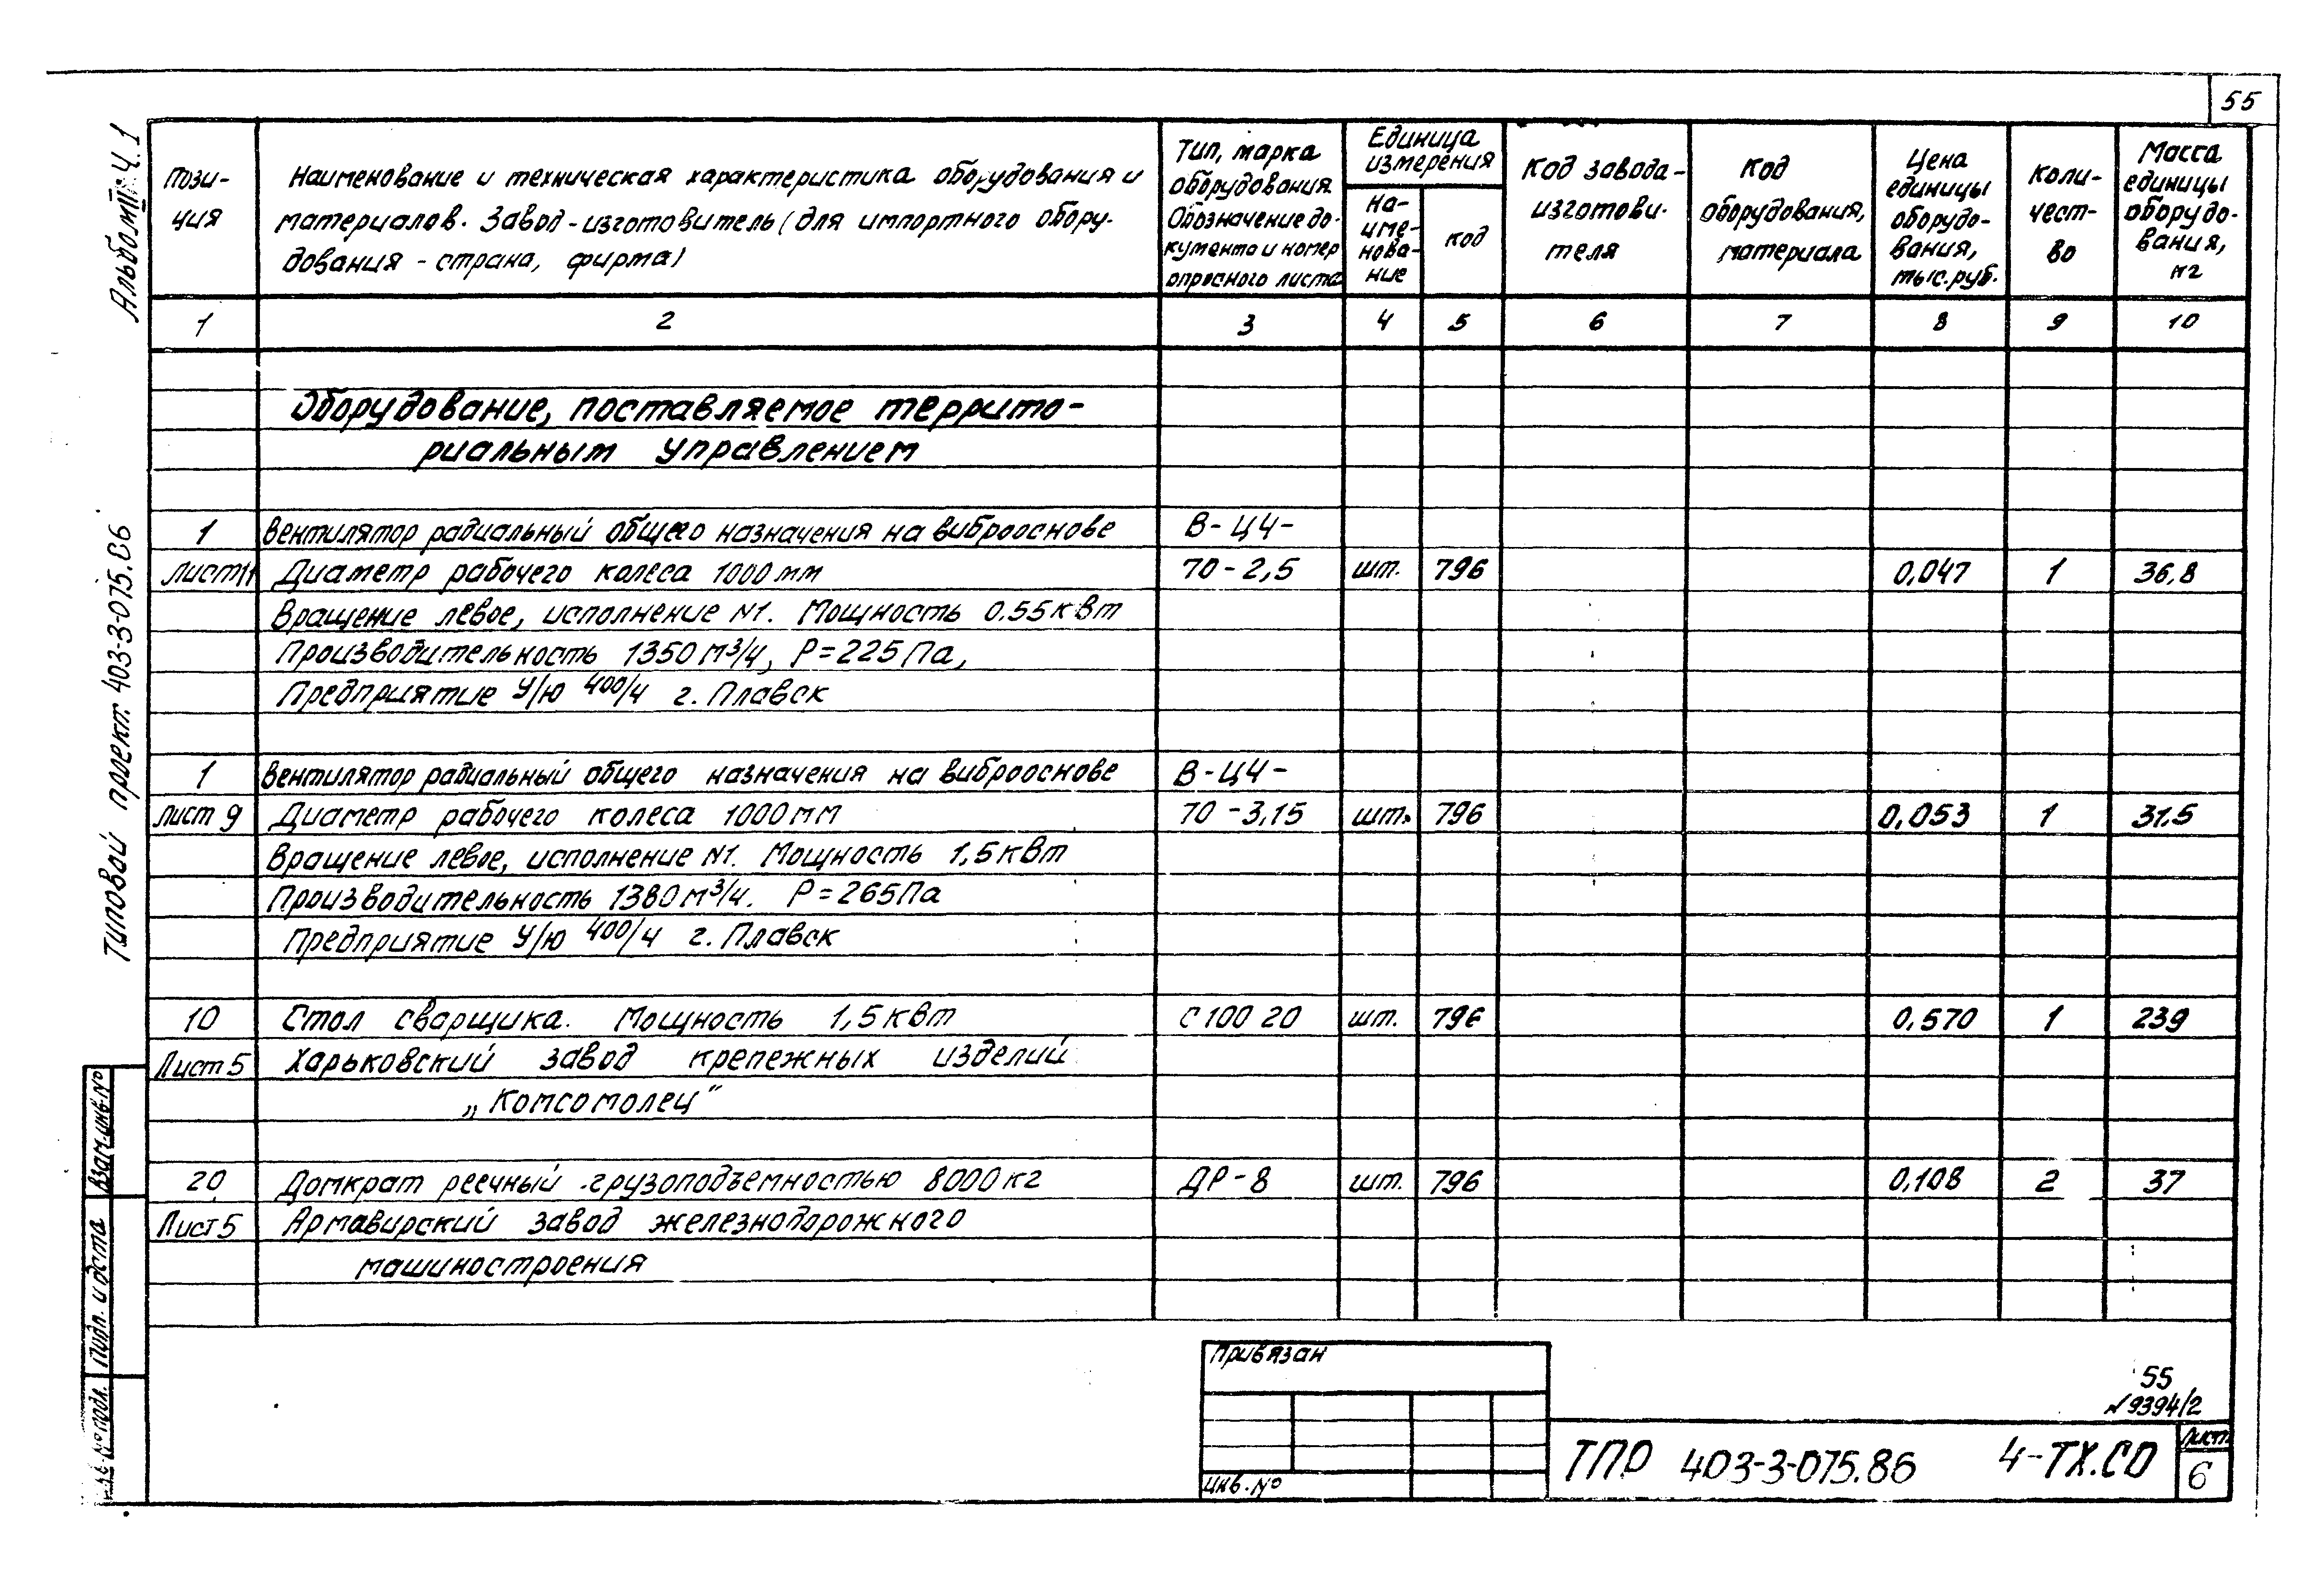 55
Альбом III Ч.1
Типовой проект 403-3-075.86
Пози-
ция
Наименование и техническая характеристика оборудования и
материалов. Завод-изготовитель (для импортного обору-
дования - страна, фирма)
Тип, марка
оборудования
Обозначение до-
кумента и номер
опросного листа
Единица
измерения
На-
име-
нова-
ние
код
Код завода-
изготови-
теля
Код
оборудования,
материала
Цена
единицы
оборудо-
вания,
тыс.руб.
Коли-
чест-
во
Масса
единицы
оборудо-
вания,
кг
1 2 3 4 5 6 7 8 9 10
Оборудование, поставляемое террито-
риальным управлением
1 Вентилятор радиальный общего назначения на виброоснове В-Ц4-
Лист 11 Диаметр рабочего колеса 1000 мм 70-2,5 шт. 796 0,047 1 36,8
Вращение левое, исполнение N1. Мощность 0.55 кВт
Производительность 1350 м³/ч, Р=225 Па,
Предприятие У/ю 400/4 г. Плавск
1 Вентилятор радиальный общего назначения на виброоснове В-Ц4-
Лист 9 Диаметр рабочего колеса 1000 мм 70-3,15 шт. 796 0,053 1 31.5
Вращение левое, исполнение N1. Мощность 1,5 кВт
Производительность 1380 м³/ч. Р=265 Па
Предприятие У/ю 400/4 г. Плавск
10 Стол сварщика. Мощность 1,5 кВт С10020 шт. 796 0,570 1 239
Лист 5 Харьковский завод крепежных изделий
„Комсомолец"
20 Домкрат реечный грузоподъемностью 8000 кг ДР-8 шт. 796 0,108 2 37
Лист 5 Армавирский завод железнодорожного
машиностроения
Взам.инв.№
Подп. и дата
№ подл.
Привязан
Инв.№
55
N 9394/2
ТПР 403-3-075.86 4-ТХ.СО
Лист
6